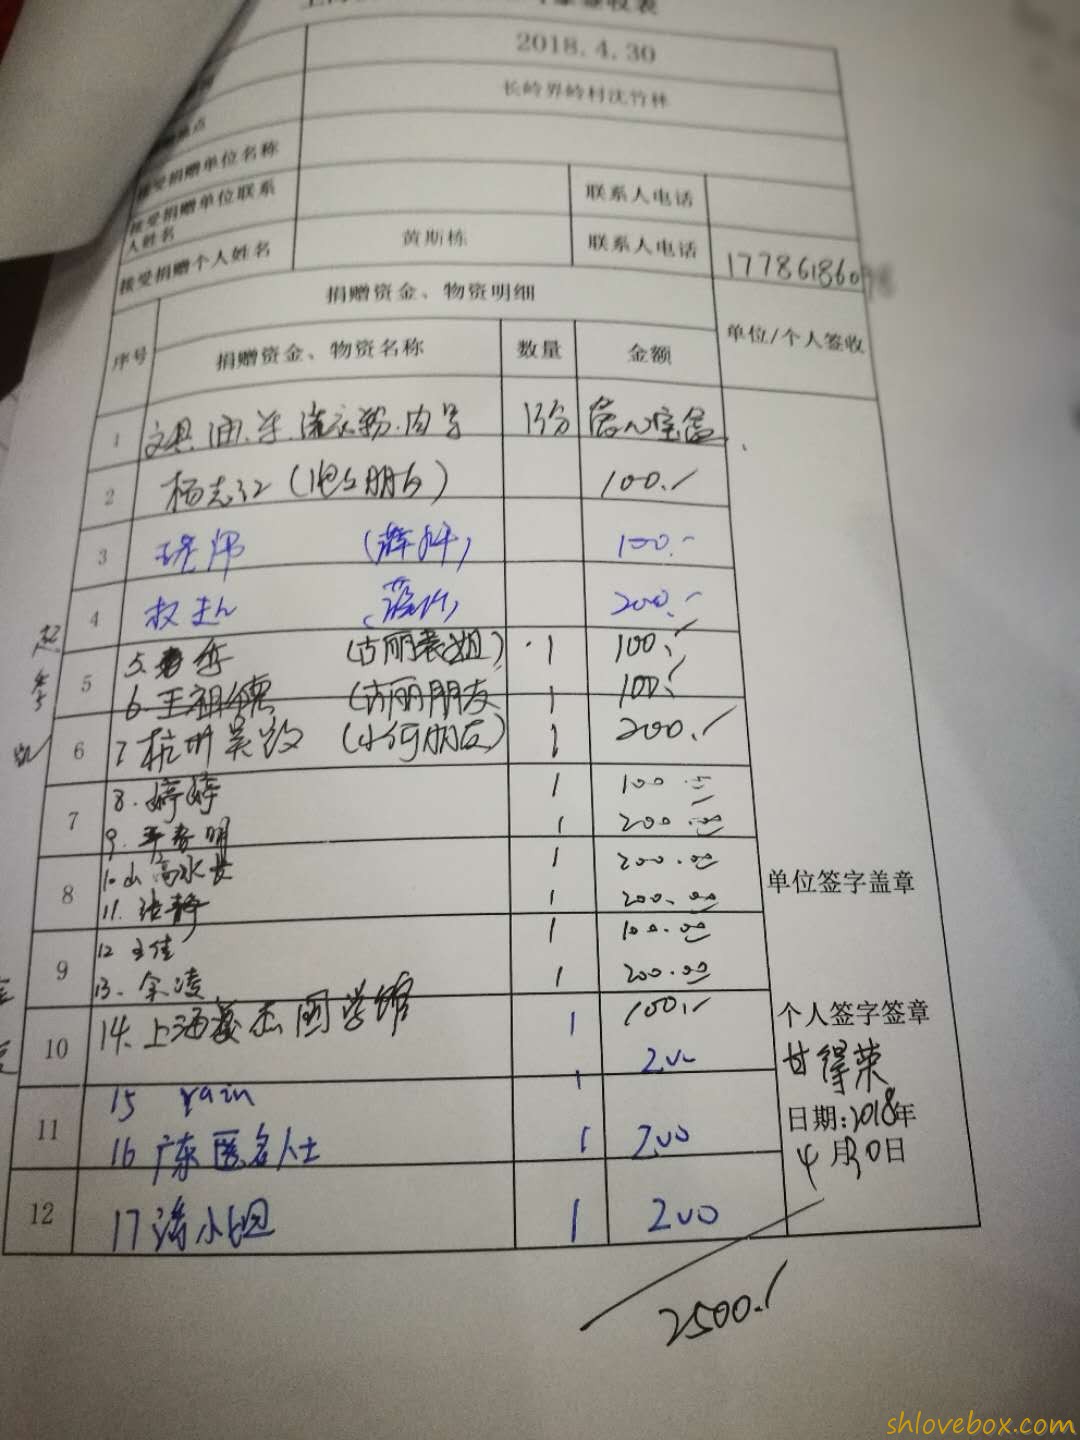 签收表
2018.4.30
长岭界岭村沈竹林
点
接受捐赠单位名称
接受捐赠单位联系人姓名
联系人电话
接受捐赠个人姓名
黄斯栋
联系人电话
177861860
捐赠资金、物资明细
单位/个人签收
序号
捐赠资金、物资名称
数量
金额
1
文具.油.米.洗衣粉.肉等
1份
爱心宝盒
2
杨志江(
朋友)
100.-
3
100.-
4
200.-
5
5.
(古丽表姐)
1
100.-
6.王祖德
(古丽朋友
1
100.-
6
7杭州吴
(小何朋友)
1
200.-
7
8.婷婷
1
100.00
9.
明
1
200.00
8
10.山高水长
1
200.00
11.张静
1
200.00
9
12
佳
1
100.00
13.余凌
1
200.00
10
14.上海
国学馆
1
100.-
11
15 rain
1
200
16 广东匿名人士
1
200
12
17潘小姐
1
200
单位签字盖章
个人签字签章
甘得荣
日期:2018年
4月30日
2500.-
shlovebox.com